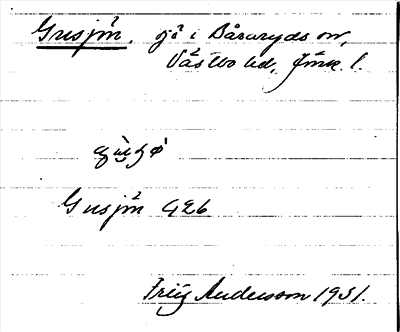 Gusjön. sjö i Båraryds sn,
Västbo hd, Jönk. l.
Gusjön G2b
Frig Andersson 1931.